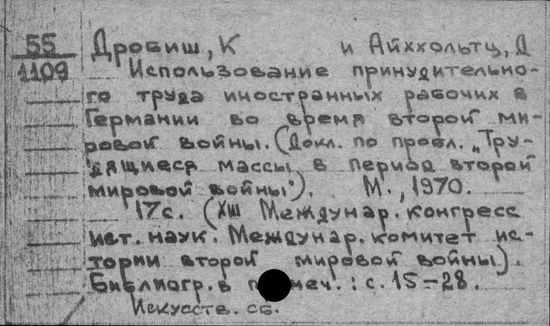 55 Дробиш, К и Айххольтц, Д
1109 Использование принудительно-
го труда иностранных рабочих в
Германии во время второй ми-
ровой войны. (Докл. по пробл. „Тру-
дящиеся массы в период второй
мировой войны"). М., 1970.
17с. (XIII Междунар. конгресс
ист. наук. Междунар. комитет ис-
тории второй мировой войны).
Библиогр. в п меч.: с. 15-28.
Искусств. сб.